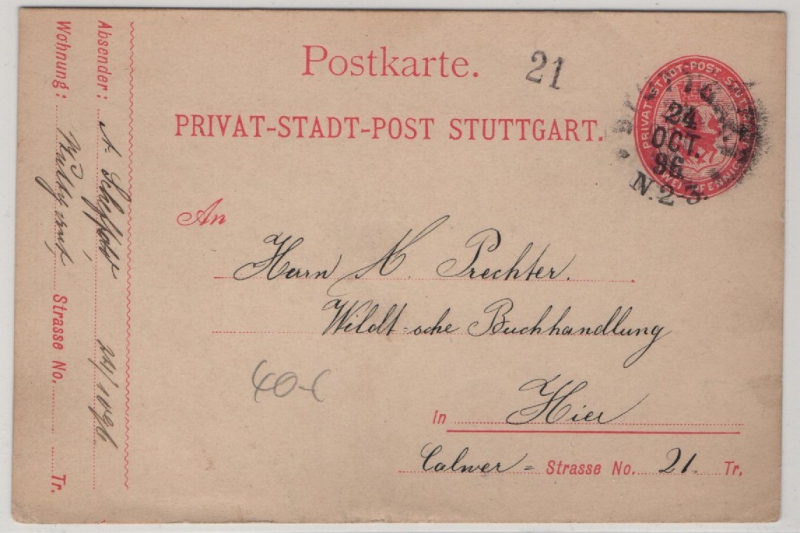 Postkarte.
21
PRIVAT-STADT-POST STUTTGART.
PRIVAT-STADT-POST STUTTGART
PFENNIG
24
OCT.
96
N.2-3.
An
Herrn A. Prechter.
Wildt'sche Buchhandlung
in Hier
Calwer- Strasse No. 21 Tr.
40-
Absender: A. Scheffold
24/10 96
Wohnung: Strasse No. Tr.